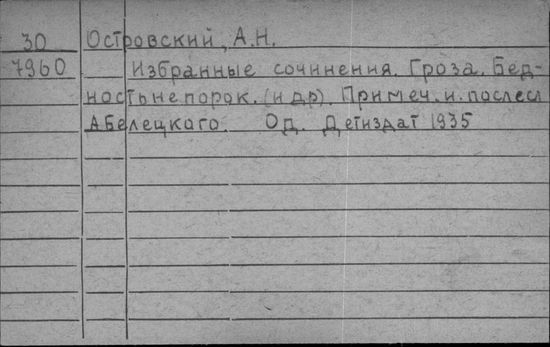 30 Островский, А.Н.
7960 Избранные сочинения. Гроза. Бед-
ность не порок. (и др). Примеч. и. послесл
А Белецкого. Од. Детиздат 1935